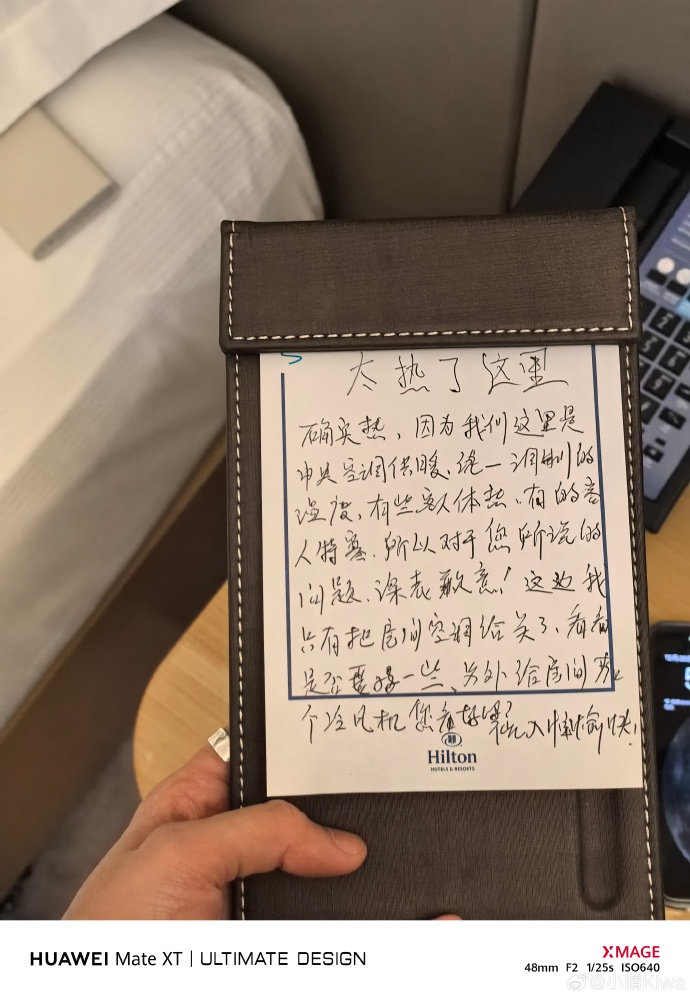 太热了这里
确实热，因为我们这里是
中央空调供暖、统一调制的
温度，有些客人体热、有的客
人特寒，所以对于您所说的
问题、深表歉意！这边我
只有把房间空调给关了，看看
是否要好一些、另外给房间
个冷风机您看好吗？
愉快！
Hilton
HOTELS & RESORTS
2
HUAWEI Mate XT | ULTIMATE DESIGN
XMAGE
48mm F2 1/25s ISO640
@小晴Kiwa